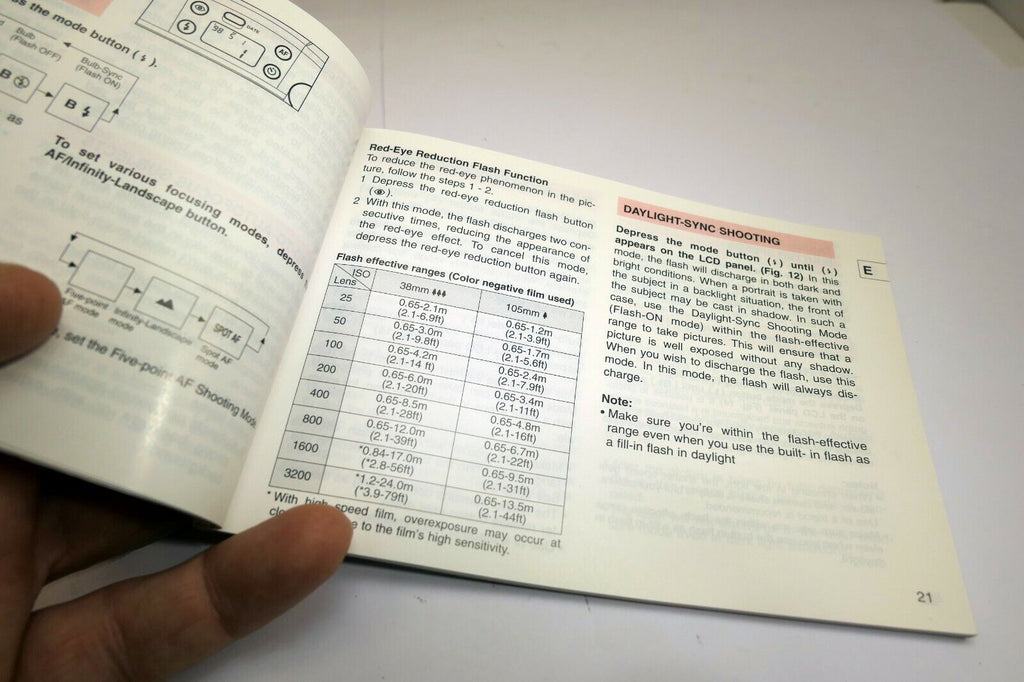 ss the mode button ( ).
Bulb
(Flash OFF)
Bulb-Sync
(Flash ON)
B
B
as
DATE
98 5 1
AF
To set various focusing modes, depress
AF/Infinity-Landscape button.
SPOT AF
Five-point
AF mode
Infinity-Landscape
mode
Spot AF
mode
, set the Five-point AF Shooting Mode
Red-Eye Reduction Flash Function
To reduce the red-eye phenomenon in the pic-
ture, follow the steps 1 - 2.
1 Depress the red-eye reduction flash button
( ).
2 With this mode, the flash discharges two con-
secutive times, reducing the appearance of
the red-eye effect. To cancel this mode,
depress the red-eye reduction button again.
Flash effective ranges (Color negative film used)
ISO
Lens 38mm 105mm
25 0.65-2.1m (2.1-6.9ft) 0.65-1.2m (2.1-3.9ft)
50 0.65-3.0m (2.1-9.8ft) 0.65-1.7m (2.1-5.6ft)
100 0.65-4.2m (2.1-14 ft) 0.65-2.4m (2.1-7.9ft)
200 0.65-6.0m (2.1-20ft) 0.65-3.4m (2.1-11ft)
400 0.65-8.5m (2.1-28ft) 0.65-4.8m (2.1-16ft)
800 0.65-12.0m (2.1-39ft) 0.65-6.7m) (2.1-22ft)
1600 *0.84-17.0m (*2.8-56ft) 0.65-9.5m (2.1-31ft)
3200 *1.2-24.0m (*3.9-79ft) 0.65-13.5m (2.1-44ft)
* With high speed film, overexposure may occur at
e to the film's high sensitivity.
DAYLIGHT-SYNC SHOOTING
Depress the mode button ( ) until ( )
appears on the LCD panel. (Fig. 12) In this
mode, the flash will discharge in both dark and
bright conditions. When a portrait is taken with
the subject in a backlight situation, the front of
the subject may be cast in shadow. In such a
case, use the Daylight-Sync Shooting Mode
(Flash-ON mode) within the flash-effective
range to take pictures. This will ensure that a
picture is well exposed without any shadow.
When you wish to discharge the flash, use this
mode. In this mode, the flash will always dis-
charge.
Note:
• Make sure you're within the flash-effective
range even when you use the built- in flash as
a fill-in flash in daylight
E
21